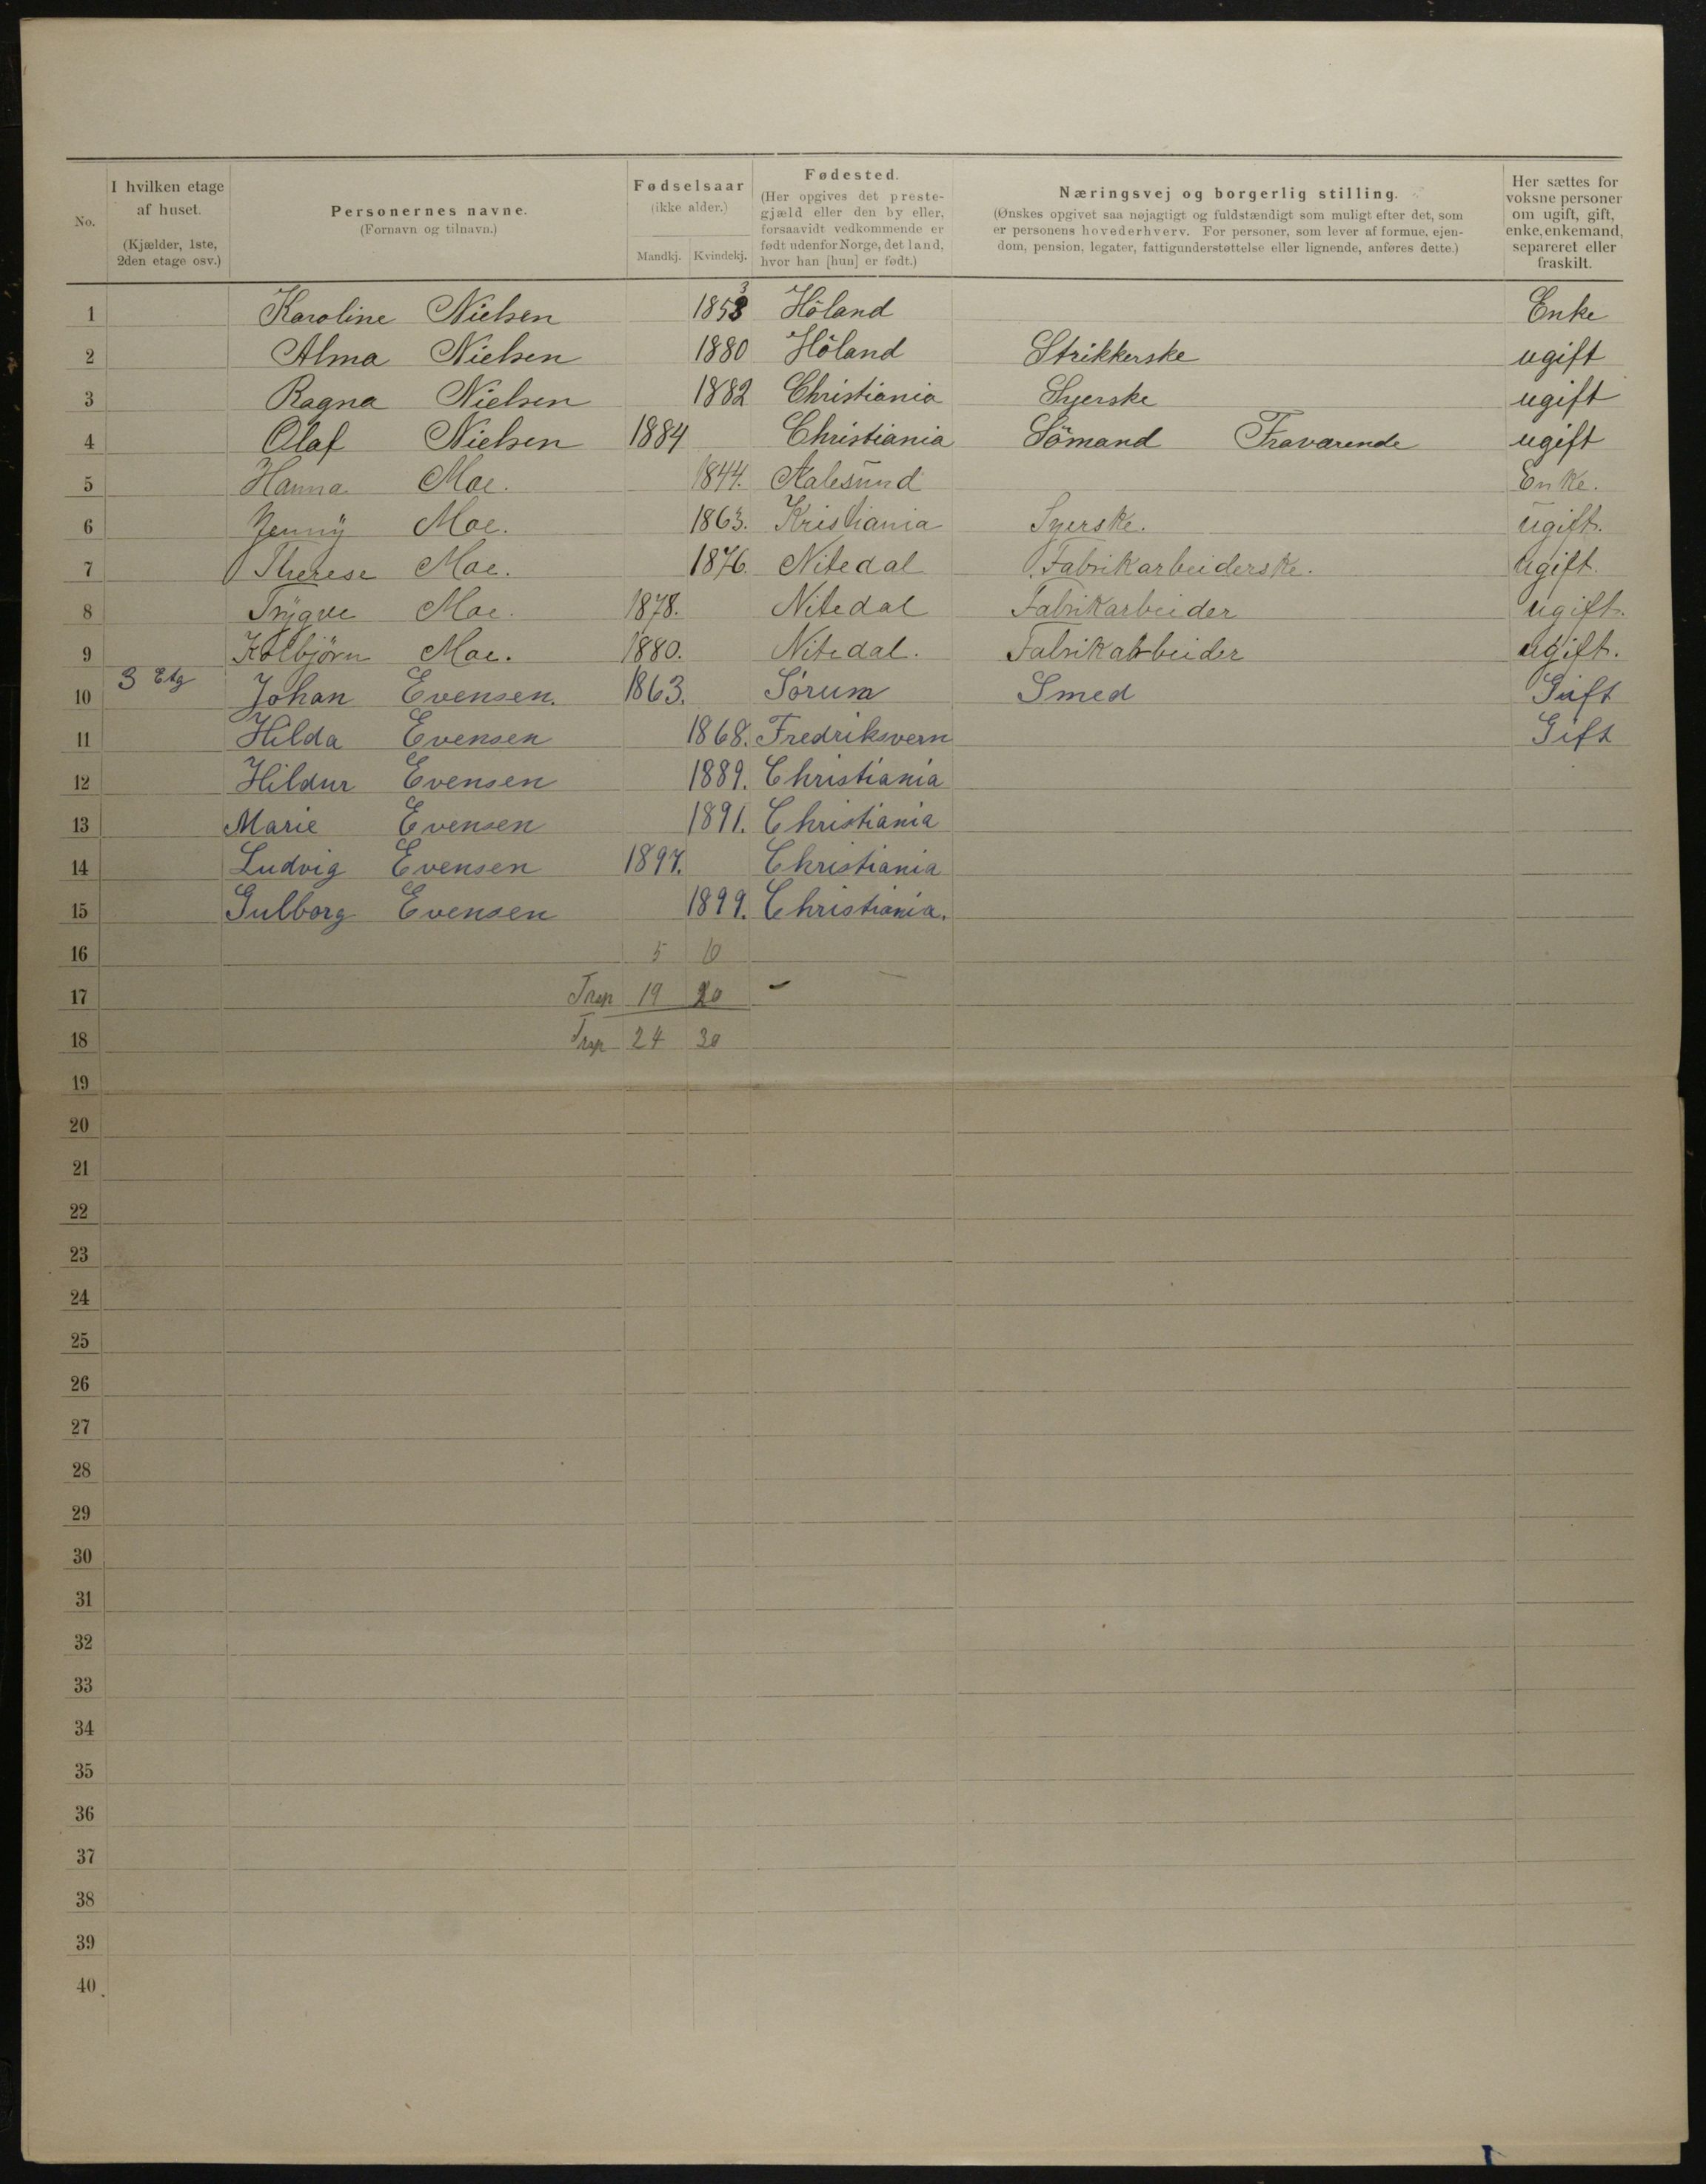 No. | I hvilken etage af huset. (Kjælder, 1ste, 2den etage osv.) | Personernes navne. (Fornavn og tilnavn.) | Fødselsaar (ikke alder.) Mandkj. Kvindekj. | Fødested. (Her opgives det prestegjæld eller den by eller, forsaavidt vedkommende er født udenfor Norge, det land, hvor han [hun] er født.) | Næringsvej og borgerlig stilling. (Ønskes opgivet saa nøjagtigt og fuldstændigt som muligt efter det, som er personens hovederhverv. For personer, som lever af formue, ejendom, pension, legater, fattigunderstøttelse eller lignende, anføres dette.) | Her sættes for voksne personer om ugift, gift, enke, enkemand, separeret eller fraskilt.
1 Karoline Nielsen 1853 Höland Enke
2 Alma Nielsen 1880 Höland Strikkerske ugift
3 Ragna Nielsen 1882 Christiania Syerske ugift
4 Olaf Nielsen 1884 Christiania Sömand Fraværende ugift
5 Hanna Moe. 1844. Aalesund Enke.
6 Jenny Moe. 1863. Kristiania Syerske. ugift.
7 Therese Moe. 1876. Nitedal Fabrikarbeiderske. ugift.
8 Trygve Moe. 1878. Nitedal Fabrikarbeider ugift.
9 Kolbjörn Moe. 1880. Nitedal. Fabrikarbeider ugift.
10 3 Etg Johan Evensen. 1863. Sørum Smed Gift
11 Hilda Evensen 1868. Fredriksvern Gift
12 Hildur Evensen 1889. Christiania
13 Marie Evensen 1891. Christiania
14 Ludvig Evensen 1897. Christiania
15 Gulborg Evensen 1899. Christiania.
16 5 10
17 Trsp 19 20
18 Trsp 24 30
19
20
21
22
23
24
25
26
27
28
29
30
31
32
33
34
35
36
37
38
39
40